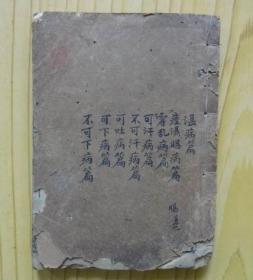 温病篇
痙濕暍病篇
霍乱病篇
可汗病篇
不可汗病篇
可吐病篇
可下病篇
不可下病篇